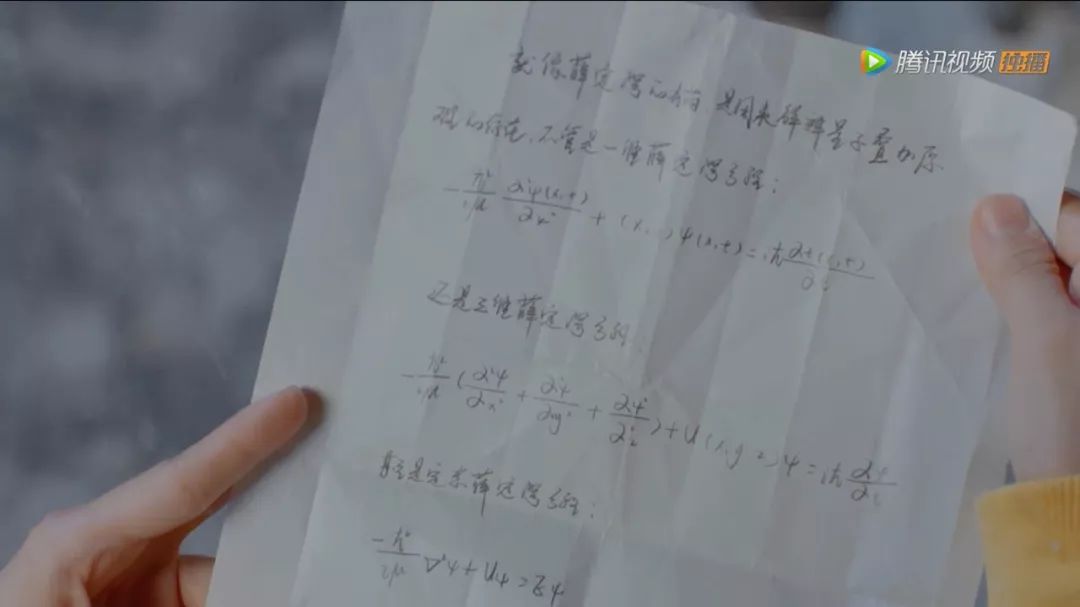 腾讯视频 独播
就像薛定谔的猫,是用来解释量子叠加原
理的存在,不管是一维薛定谔方程:
-ħ²/2μ ∂²ψ(x,t)/∂x² + (x, )ψ(x,t)=iħ ∂ψ(x,t)/∂t
还是三维薛定谔方程:
-ħ²/2μ (∂²ψ/∂x² + ∂²ψ/∂y² + ∂²ψ/∂z²)+U(x,y,z)ψ=iħ ∂ψ/∂t
甚至是定态薛定谔方程:
-ħ²/2μ ∇²ψ+Uψ=Eψ